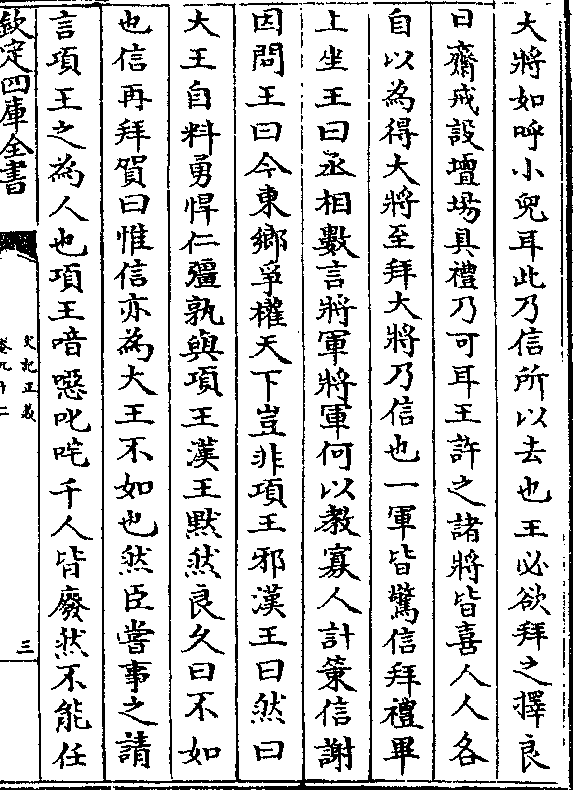 大將如呼小兒耳此乃信所以去也王必欲拜之擇良
日齋戒設壇場具禮乃可耳王許之諸將皆喜人人各
自以為得大將至拜大將乃信也一軍皆驚信拜禮畢
上坐王曰丞相數言將軍將軍何以教寡人計策信謝
因問王曰今東鄉爭權天下豈非項王邪漢王曰然曰
大王自料勇悍仁彊孰與項王漢王默然良久曰不如
也信再拜賀曰惟信亦為大王不如也然臣嘗事之請
言項王之為人也項王喑噁叱咤千人皆廢然不能任
欽定四庫全書
史記正義
卷九十二
三